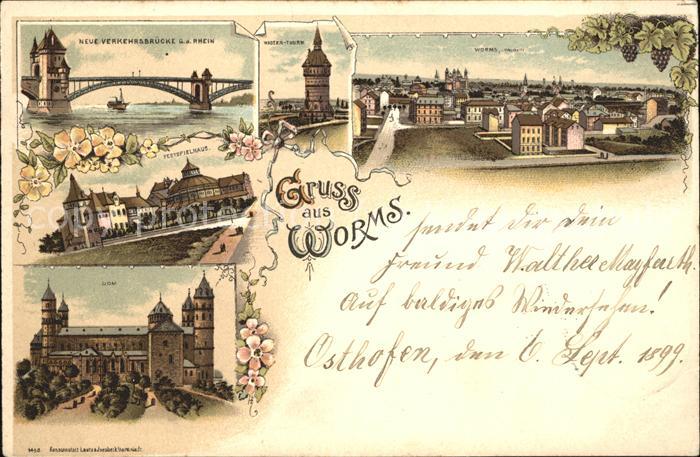 NEUE VERKEHRSBRÜCKE Ü.D. RHEIN
WASSER-THURM
WORMS
FESTSPIELHAUS.
GRUSS
aus
WORMS.
DOM
sendet dir dein
Freund Walther Mayfarth
Auf baldiges Wiedersehen!
Osthofen, den 6. Sept. 1899.
Kunstanstalt